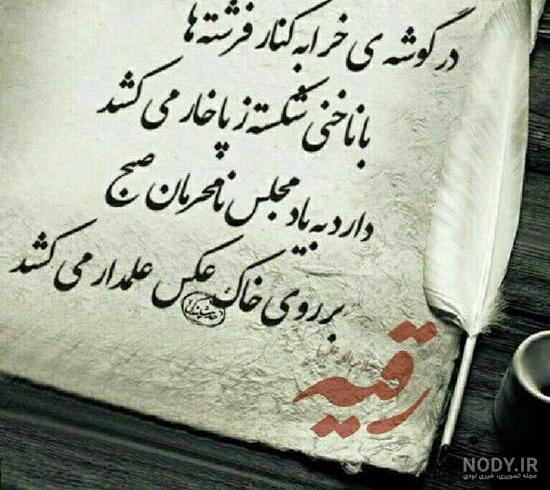 در گوشه ی خرابه کنار فرشته ها
با ناخنی شکسته ز پا خار می کشد
دارد به یاد مجلس نامحرمان صبح
بر روی خاک عکس علمدار می کشد
رقیه
NODY.IR
مجله تصویری، خبری نودی